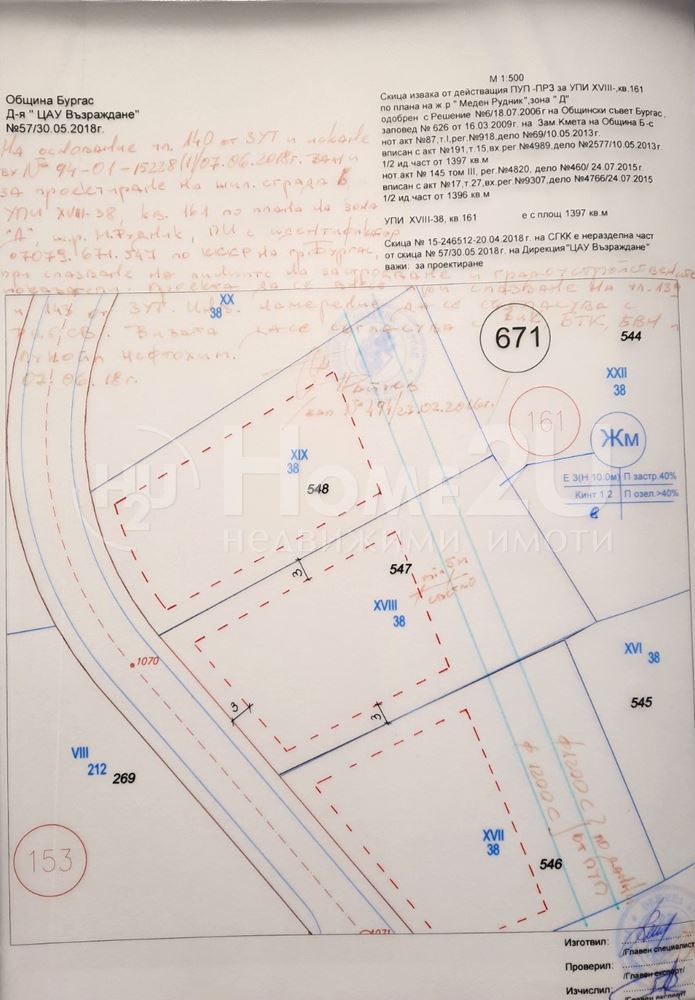 М 1:500
Община Бургас
Д-я " ЦАУ Възраждане"
№57/30.05.2018г.
Скица извака от действащия ПУП -ПРЗ за УПИ XVIII-,кв.161
по плана на ж.р " Меден Рудник",зона " Д"
одобрен с Решение №6/18.07.2006г на Общински съвет Бургас,
заповед № 626 от 16.03.2009г. на Зам.Кмета на Община Б-с
нот.акт №87,т.I,рег.№918,дело №69/10.05.2013г.
вписан с акт №191,т.15,вх.рег №4989,дело №2577/10.05.2013г.
1/2 ид.част от 1397 кв.м
нот.акт № 145 том III, рег №4820, дело №460/ 24.07.2015г
вписан с акт №17,т.27,вх.рег №9307,дело №4766/24.07.2015
1/2 ид част от 1396 кв.м
УПИ XVIII-38, кв.161 е с площ 1397 кв.м
Скица № 15-246512-20.04.2018 г. на СГКК е неразделна част
от скица № 57/30.05.2018г. на Дирекция"ЦАУ Възраждане"
важи: за проектиране
На основание чл. 140 от ЗУТ и
вх № 94-01-15228/1/07.06.2018г.
за проектиране на жил. сграда в
УПИ XVIII-38, кв. 161 по плана на зона
"Д", ж.р. М.Рудник, ПИ с идентификатор
07079.671.547 по КККР на гр. Бургас,
при спазване на линиите на застрояване и градоустройствените
показатели проекта да се при спазване на чл. 139
и 143 от ЗУТ. Инв. намерение да се съгласува с
Визата да се съгласува с ВиК, БТК,
Нефтохим.
07.06.18г.
XX
38
671
544
XXII
38
161
Жм
Е 3(Н 10.0м) П застр.40%
Кинт 1,2 П озел.>40%
в
XIX
38
548
HOME2U
недвижими имоти
547
3
XVIII
38
1070
XVI
38
545
3
3
VIII
212
269
ф 1200 С
ф 1200 С
от ПУП
XVII
38
546
153
1071
Изготвил:
/Главен специалист
Проверил:
/Главен експерт/
Изчислил: